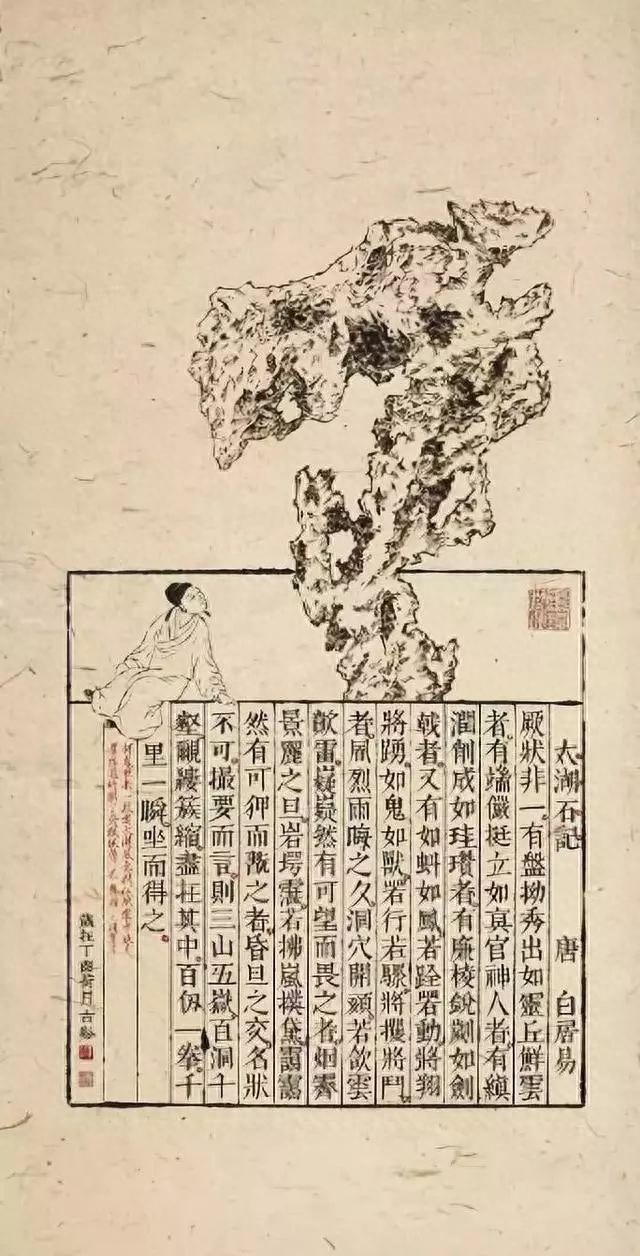 太湖石記 唐 白居易
厥狀非一有盤拗秀出如靈丘鮮雲
者有端儼挺立如真官神人者有縝
潤削成如珪瓚者有廉稜銳劌如劍
戟者又有如虯如鳳若跧若動將翔
將踴如鬼如獸若行若驟將攫將鬥
者風烈雨晦之夕洞穴開頦若欱雲
歕雷嶷嶷然有可望而畏之者烟霽
景麗之旦岩堮霮若拂嵐撲黛靄靄
然有可狎而翫之者昏旦之交名狀
不可撮要而言則三山五嶽百洞千
壑覼縷簇縮盡在其中百仞一拳千
里一瞬坐而得之。
歲在丁酉荷月古谿